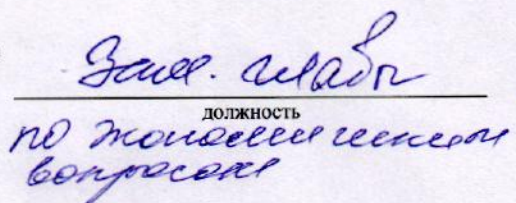 Зам. главы
должность
по экономическим
вопросам